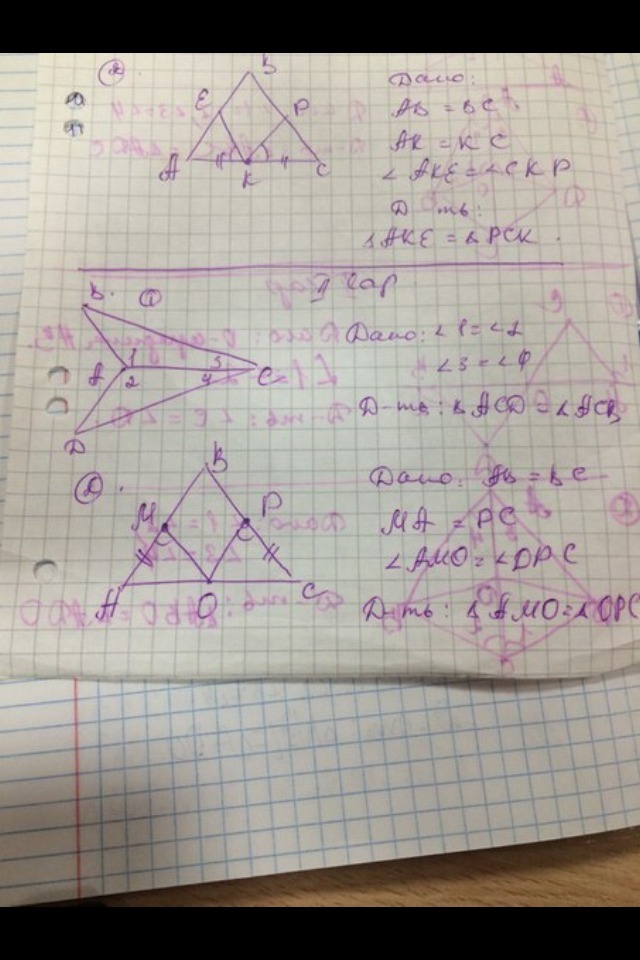 ②.
B
E
P
A
K
C
Дано:
AB = BC
AK = KC
∠AKE = ∠CKP
Д-ть:
△AKE = △PCK.
II вар
①
B
A
1
2
3
4
C
D
Дано: ∠1 = ∠2
∠3 = ∠4
Д-ть: △ACD = △ACB
②.
B
M
P
A
O
C
Дано: AB = BC
MA = PC
∠AMO = ∠OPC
Д-ть: △AMO = △OPC